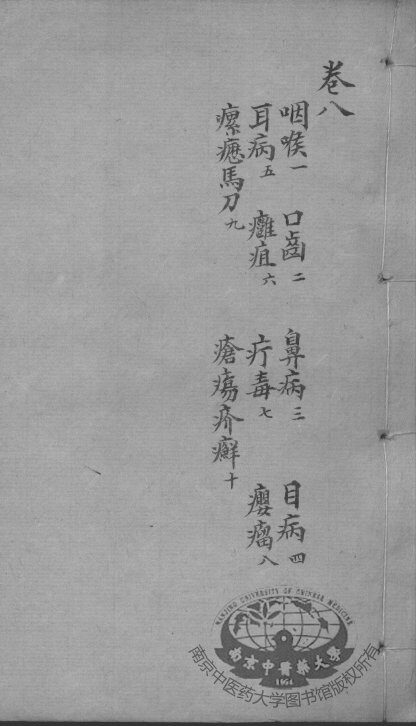 卷八
咽喉一 口齒二 鼻病三 目病四
耳病五 癰疽六 疔毒七 癭瘤八
瘰癧馬刀九 瘡瘍疥癬十
NANJING UNIVERSITY OF CHINESE MEDICINE
南京中醫藥大學
1954
南京中医药大学图书馆版权所有